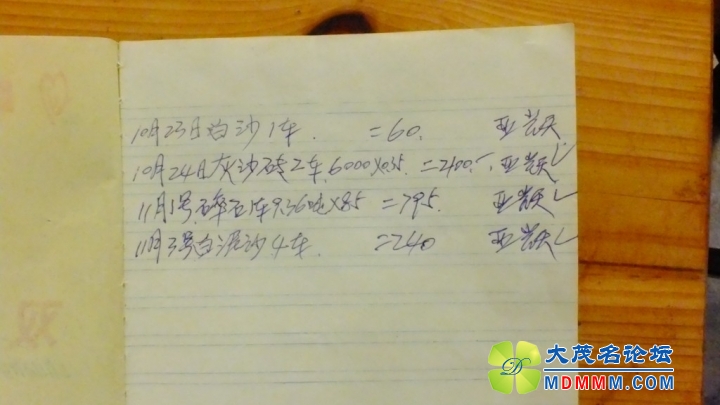 10月23日白沙1车. =60. 亚
10月24日灰沙砖2车.6000X0.35. =2100. 亚
11月1号.碎石1车9.36吨X85 =795. 亚
11月3号白泥沙4车. =240 亚
双
大茂名论坛
MDMMM.COM